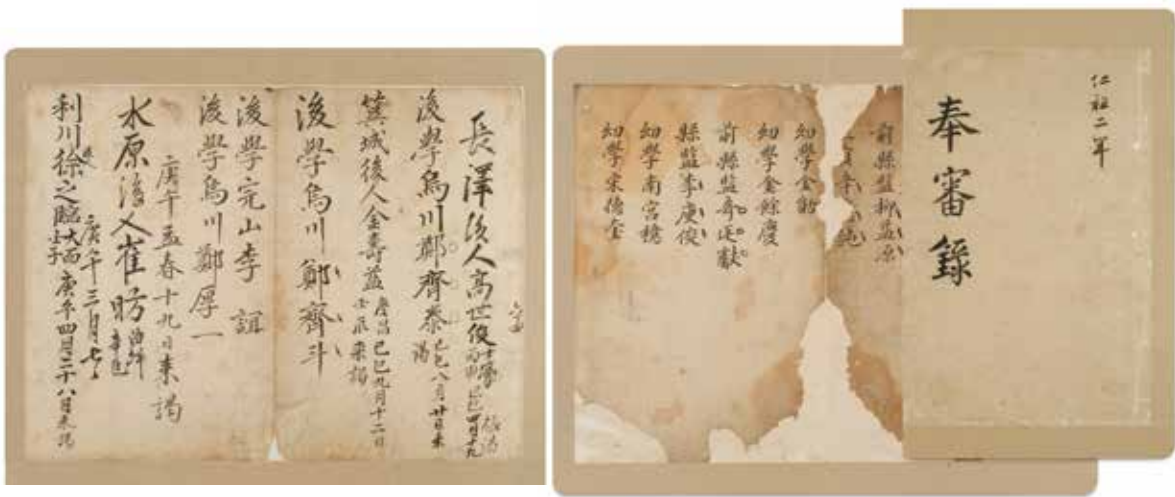 仁祖二年
奉審錄
前縣監柳益源
幼學金
幼學金餘慶
前縣監奇廷獻
縣監李庚俊
幼學南宮穩
幼學宋德奎
長澤後人高世俊
後學烏川鄭齊泰 己巳八月廿日來謁
箕城後人金壽益 己巳九月十二日來謁
後學烏川鄭齊斗
後學完山李誼
後學烏川鄭厚一
庚午孟春十九日來謁
水原後人崔昉
庚午三月七
利川徐之臨 庚午四月二十八日來謁